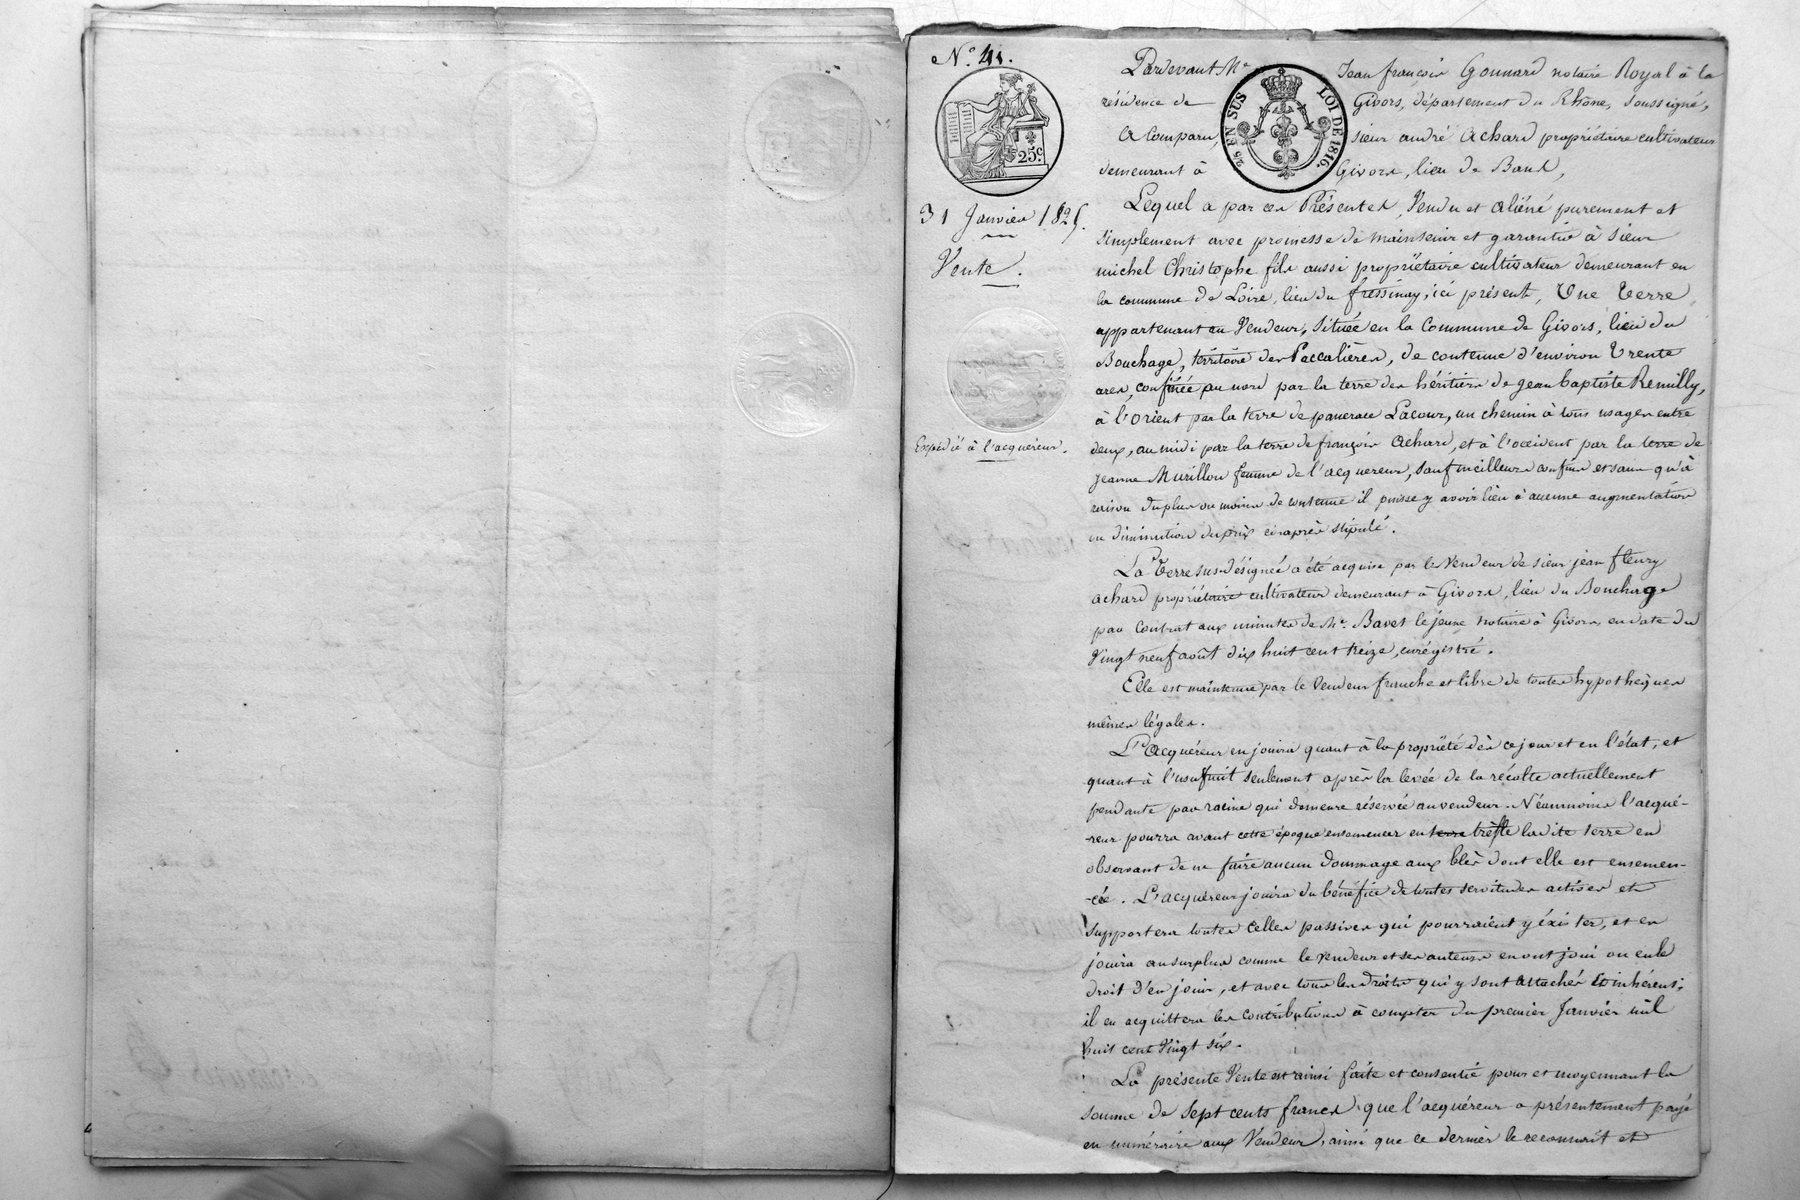 N.° 41.
25.c
31 Janvier 1825.
Vente.
Expédié à l'acquéreur.
25 EN SUS
LOI DE 1816.
Pardevant Me Jean françois Gounard notaire Royal à la
résidence de Givors, département du Rhône, soussigné,
A Comparu, sieur andré Achard propriétaire cultivateur
demeurant à Givors, lieu de Bans,
Lequel a par ces Présentes, Vendu et aliéné purement et
simplement avec promesse de maintenir et garantir à sieur
michel Christophe fils aussi propriétaire cultivateur demeurant en
la commune de Loire, lieu du fressinay, ici présent, Une Terre
appartenant au Vendeur, située en la Commune de Givors, lieu du
Bouchage, territoire des Paccalières, de contenue d'environ Trente
ares, confinée au nord par la terre des héritiers de jean baptiste Remilly,
à l'orient par la terre de pancrace Lacour, un chemin à tous usages entre
deux, au midi par la terre de françois Achard, et à l'occident par la terre de
jeanne Murillon femme de l'acquéreur, sauf meilleurs confins et sans qu'à
raison du plus ou moins de contenue il puisse y avoir lieu à aucune augmentation
ou diminution du prix ci-après stipulé.
La Terre sus-désignée a été acquise par le Vendeur de sieur jean fleury
achard propriétaire cultivateur demeurant à Givors, lieu du Bouchage
par Contrat aux minutes de Me. Bavet le jeune notaire à Givors, en date du
Vingt neuf août dix huit cent treize, enrégistré.
Elle est maintenue par le Vendeur franche et libre de toutes hypothèques
mêmes légales.
L'acquéreur en jouira quant à la propriété dès ce jour et en l'état, et
quant à l'usufruit seulement après la levée de la récolte actuellement
pendante par racine qui demeure réservée au vendeur. Néanmoins l'acqué-
-reur pourra avant cette époque ensemencer en terre trèfle ladite terre en
observant de ne faire aucun dommage aux blés dont elle est ensemen-
-cée. L'acquéreur jouira du bénéfice de toutes servitudes actives et
supportera toutes celles passives qui pourraient y éxister, et en
jouira au surplus comme le vendeur et ses auteurs en ont joui ou eu le
droit d'en jouir, et avec tous les droits qui y sont attachés et inhérens;
il en acquittera les contributions à compter du premier Janvier mil
huit cent vingt six.
La présente Vente est ainsi faite et consentie pour et moyennant la
somme de sept cents francs que l'acquéreur a présentement payé
en numéraire aux Vendeur, ainsi que ce dernier le reconnait et